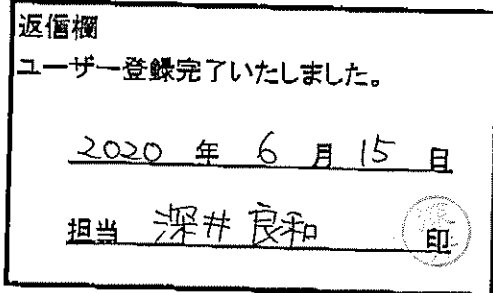 返信欄
ユーザー登録完了いたしました。
2020 年 6 月 15 日
担当 深井 良和 印